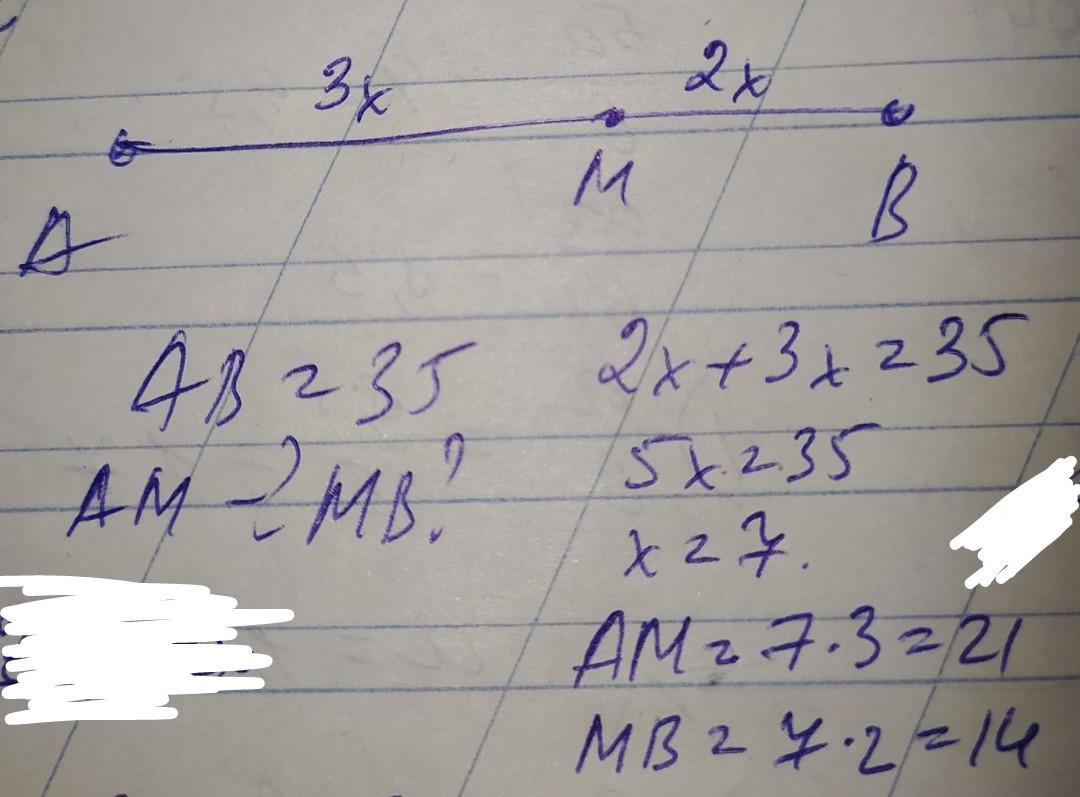 3x 2x
A M B
AB = 35
AM - ? MB ?
2x + 3x = 35
5x = 35
x = 7.
AM = 7 · 3 = 21
MB = 7 · 2 = 14